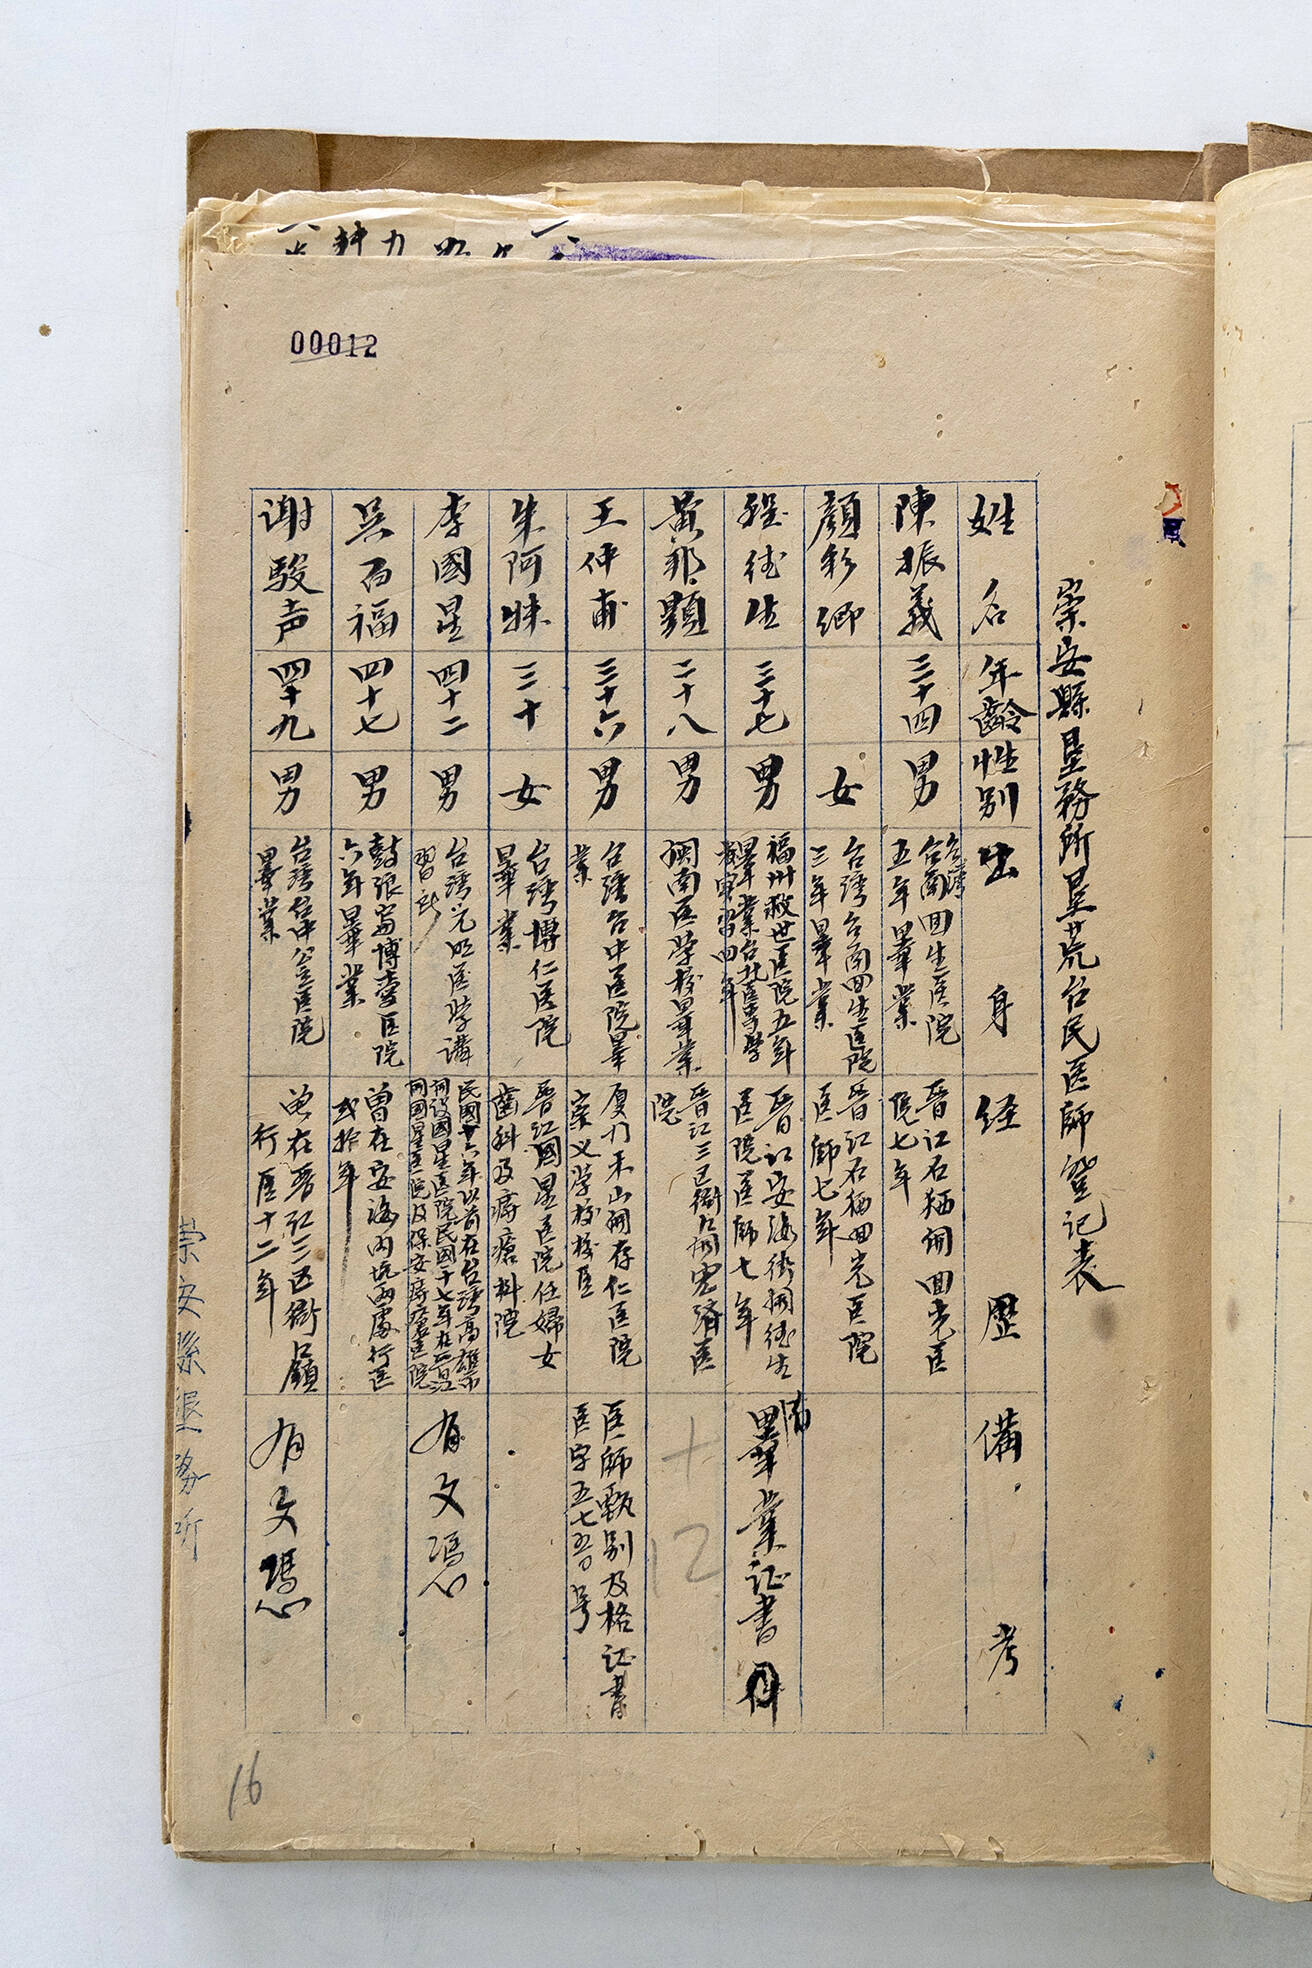 00012
崇安縣垦務所垦荒台民医師登記表
姓名 年齡 性别 出身 经歷 備考
陳振義 三十四 男
台湾
台南回生医院
五年畢業
晋江石狮開回光医
院七年
顔彩卿 女
台湾台南回生医院
三年畢業
晋江石狮回光医院
医師七年
程德生 三十七 男
福州救世医院五年
畢業台北医專學
晋江安海街開德生
医院医師七年
畢業证書
黄邦顯 二十八 男
閩南医学校畢業
晋江三区衙口開宏済医
院
十
12
王仲甫 三十六 男
台湾台中医院畢
業
厦门禾山開存仁医院
崇义学校校医
医師甄别及格证書
医字五七五〇号
朱阿妹 三十 女
台湾博仁医院
畢業
晋江國星医院任婦女
齒科及痔瘡科院
李國星 四十二 男
台湾光明医学講
習所
民國十六年以前在台湾高雄市
開設國星医院民國十七年在晋江
開國星医院及保安痔瘡医院
有文凭
吴百福 四十七 男
鼓浪嶼博愛医院
六年畢業
曾在安海内坑両處行医
弍拾年
谢駿声 四十九 男
台湾台中公立医院
畢業
曾在晋江三区衙口鎮
行医十二年
有文憑
崇安縣垦务所
16